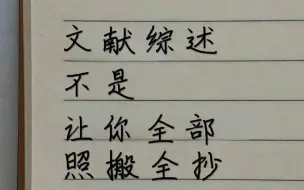 文献综述
不是
让你全部
照搬全抄